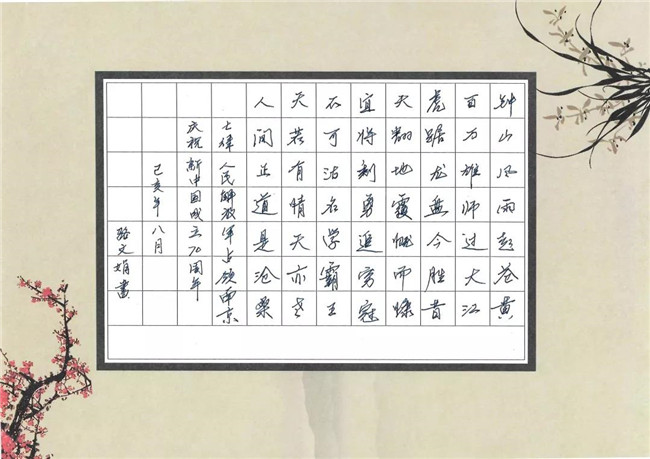 钟山风雨起苍黄
百万雄师过大江
虎踞龙盘今胜昔
天翻地覆慨而慷
宜将剩勇追穷寇
不可沽名学霸王
天若有情天亦老
人间正道是沧桑
七律 人民解放军占领南京
庆祝新中国成立70周年
己亥年 八月
骆文娟書